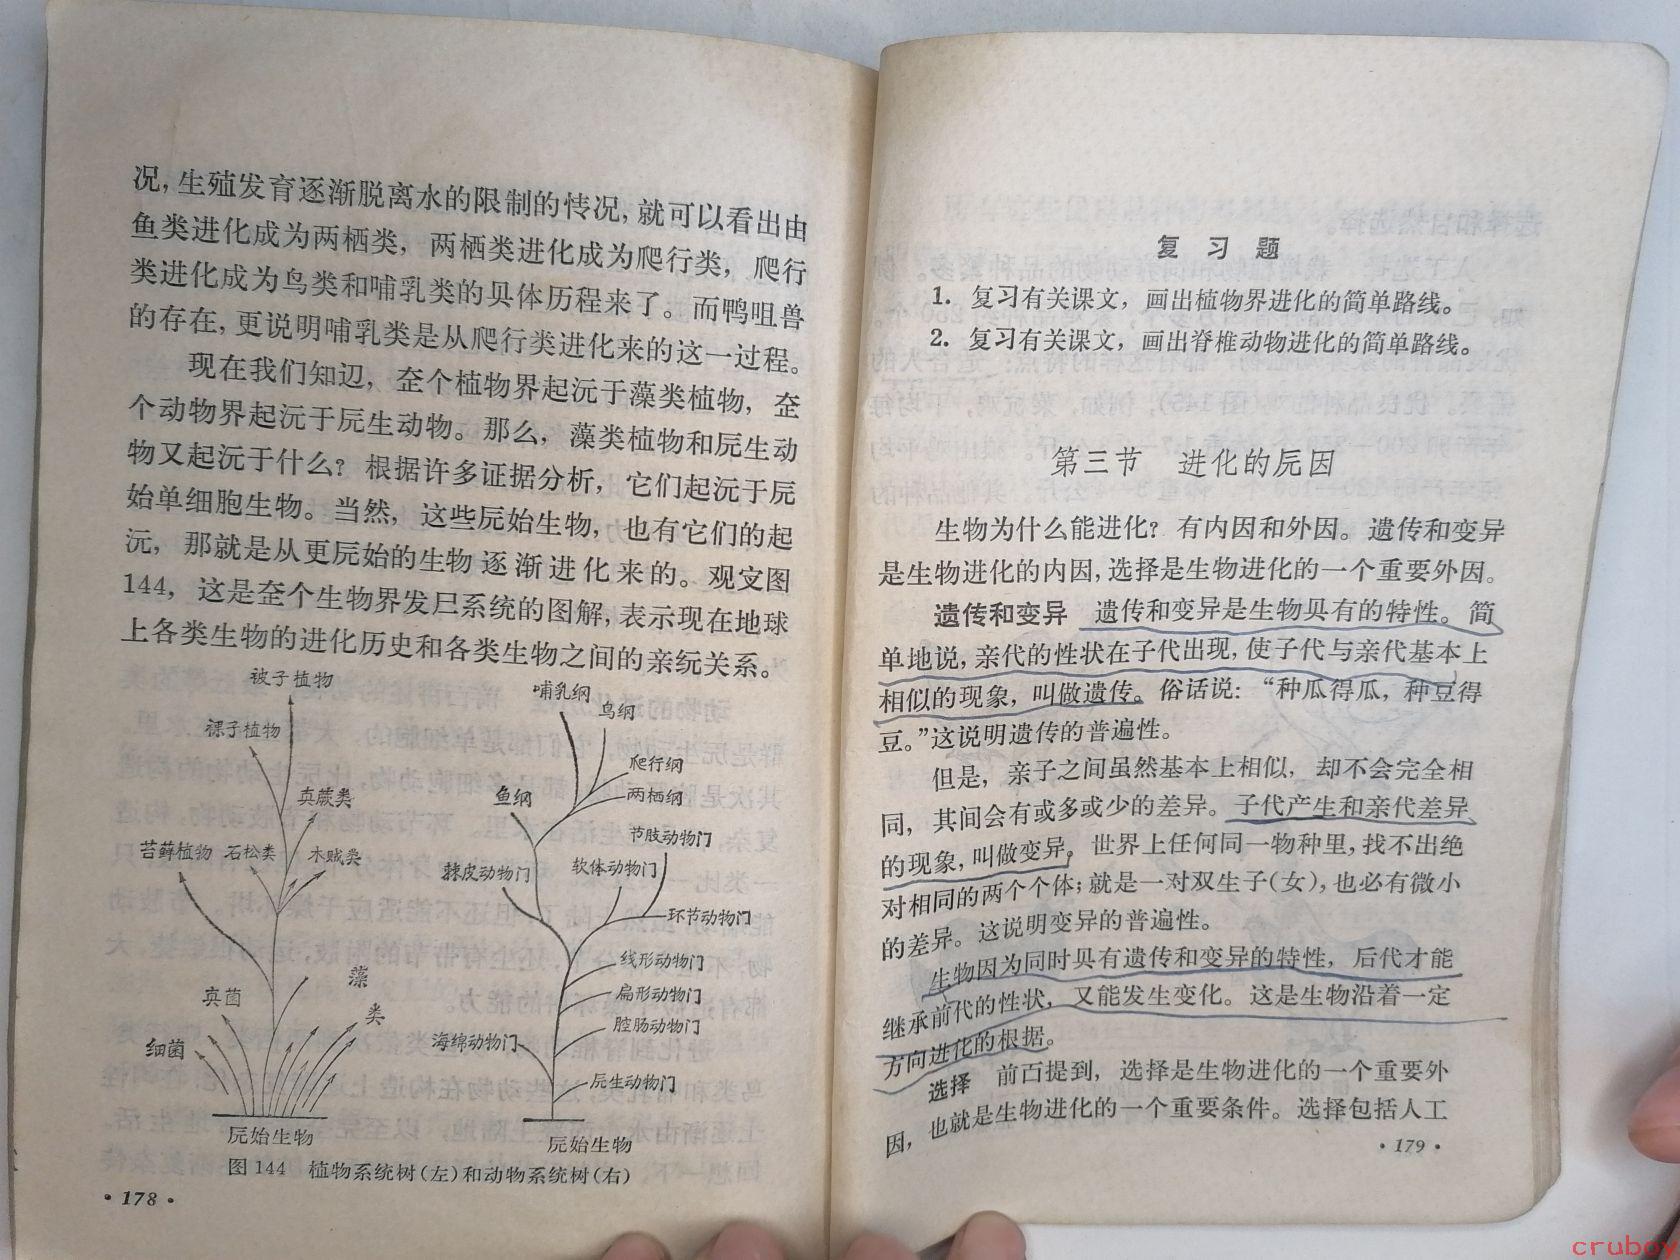 况，生殖发育逐渐脱离水的限制的情况，就可以看出由
鱼类进化成为两栖类，两栖类进化成为爬行类，爬行
类进化成为鸟类和哺乳类的具体历程来了。而鸭咀兽
的存在，更说明哺乳类是从爬行类进化来的这一过程。
现在我们知辺，整个植物界起沅于藻类植物，整
个动物界起沅于原生动物。那么，藻类植物和原生动
物又起沅于什么？根据许多证据分析，它们起沅于原
始单细胞生物。当然，这些原始生物，也有它们的起
沅，那就是从更原始的生物逐渐进化来的。观察图
144，这是整个生物界发展系统的图解，表示现在地球
上各类生物的进化历史和各类生物之间的亲缘关系。
被子植物
裸子植物
真蕨类
苔藓植物
石松类
木贼类
真菌
藻
类
细菌
原始生物
哺乳纲
鸟纲
爬行纲
鱼纲
两栖纲
节肢动物门
棘皮动物门
软体动物门
环节动物门
线形动物门
扁形动物门
腔肠动物门
海绵动物门
原生动物门
原始生物
图 144 植物系统树(左)和动物系统树(右)
· 178 ·
复习题
1. 复习有关课文，画出植物界进化的简单路线。
2. 复习有关课文，画出脊椎动物进化的简单路线。
第三节 进化的原因
生物为什么能进化？有内因和外因。遗传和变异
是生物进化的内因，选择是生物进化的一个重要外因。
遗传和变异 遗传和变异是生物具有的特性。简
单地说，亲代的性状在子代出现，使子代与亲代基本上
相似的现象，叫做遗传。俗话说：“种瓜得瓜，种豆得
豆。”这说明遗传的普遍性。
但是，亲子之间虽然基本上相似，却不会完全相
同，其间会有或多或少的差异。子代产生和亲代差异
的现象，叫做变异。世界上任何同一物种里，找不出绝
对相同的两个个体；就是一对双生子(女)，也必有微小
的差异。这说明变异的普遍性。
生物因为同时具有遗传和变异的特性，后代才能
继承前代的性状，又能发生变化。这是生物沿着一定
方向进化的根据。
选择 前面提到，选择是生物进化的一个重要外
因，也就是生物进化的一个重要条件。选择包括人工
· 179 ·
cruboy